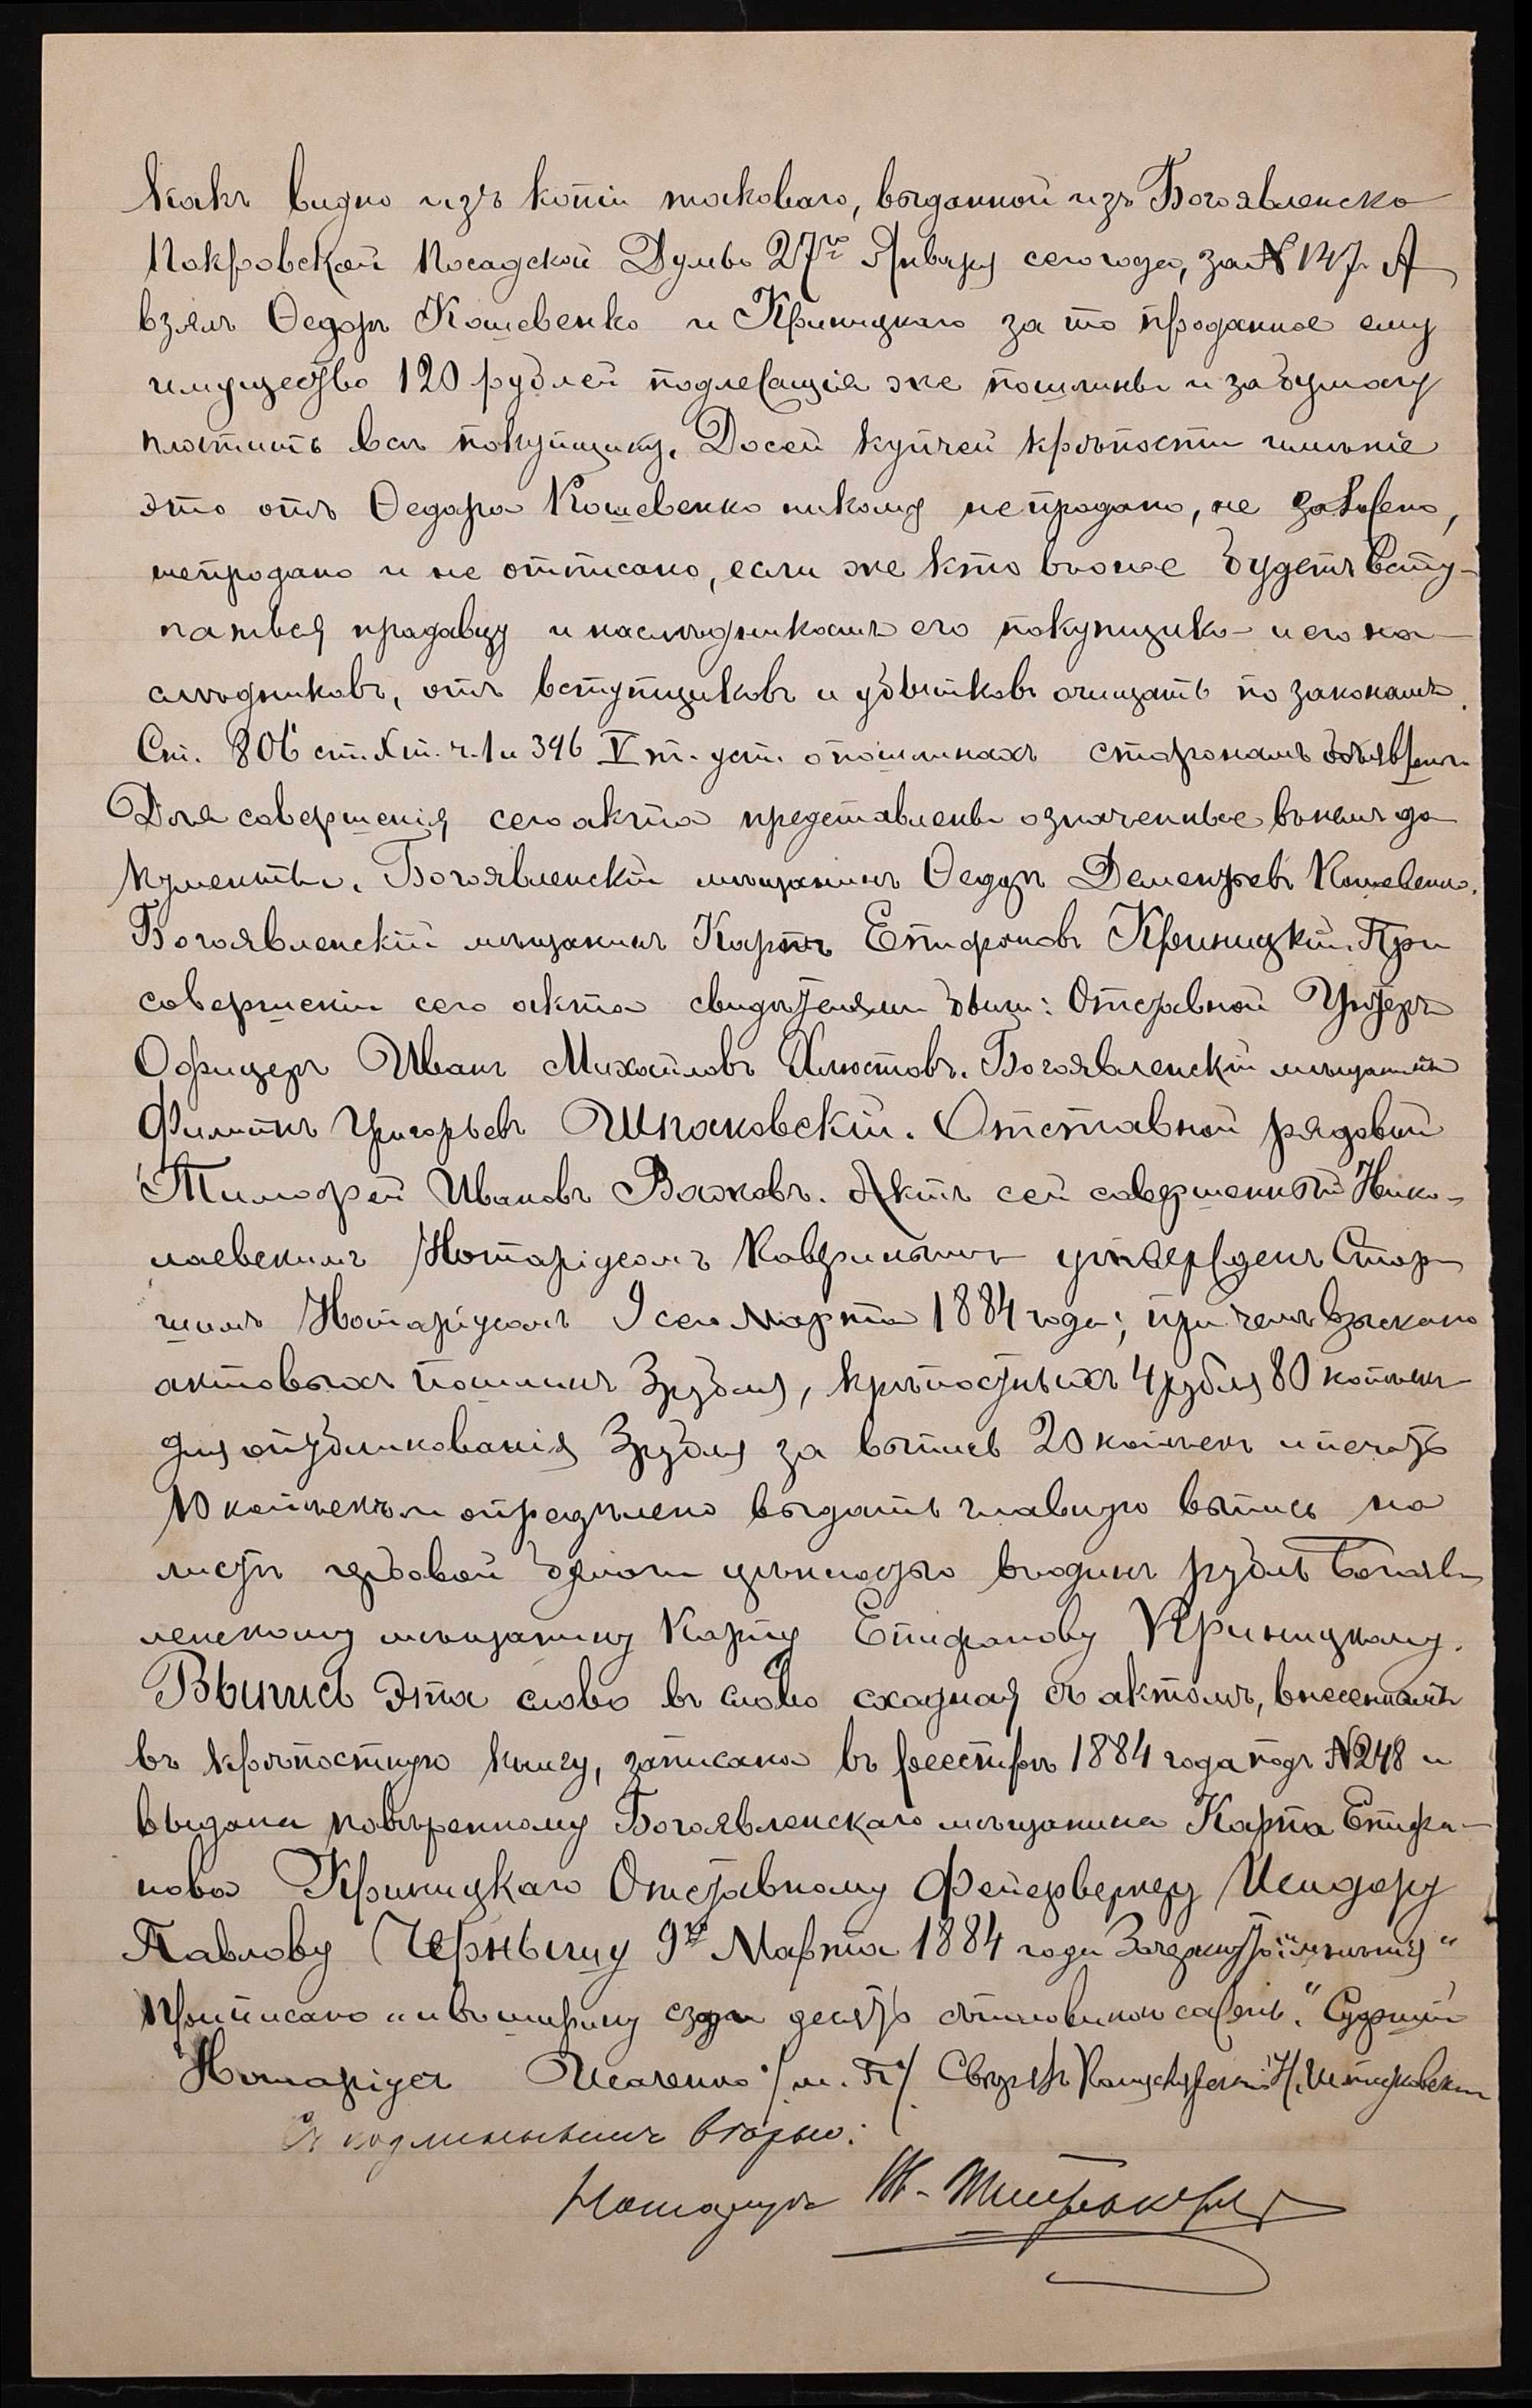 какъ видно изъ копіи таковаго, выданной изъ Богоявленско
Покровской Посадской Думы 27го Января сего года, за № 147. А
взялъ Ѳедоръ Кошевенко и Криницкаго за то проданное ему
имущество 120 рублей подлежащія же пошлины и за бумагу
платить всѣ покупщику. До сей купчей крѣпости имѣніе
это отъ Ѳедора Кошевенко никому непродано, не заложено,
непродано и не отписано, если же кто вѣоное будетъ всту-
паться продавцу и наслѣдникамъ его покупщика и его на-
слѣдниковъ, отъ вступщиковъ и убытковъ очищать по законамъ.
Ст. 806 ст. X т. ч. 1 и 396 V т. уст. о пошлинахъ сторонамъ объявлены
Для совершенія сего акта представлены означенные вънемъ до
кументы. Богоявленскій мѣщанинъ Ѳедоръ Дементьевъ Кошевенко.
Богоявленскій мѣщанинъ Карпъ Епифановъ Криницкій. При
совершеніи сего акта свидѣтелями были: Отставной Унтеръ
Офицеръ Иванъ Михайловъ Богоявленскій мѣщанинъ
Филипъ Григорьевъ Шпаковскій. Отставной рядовой
Тимофей Ивановъ Важовъ. Актъ сей совершенный Нико-
лаевскимъ Нотаріусомъ утвержденъ Стар
шимъ Нотаріусомъ 9 сего Марта 1884 года; при чемъ взыскано
актовыхъ пошлинъ 3 рубля, крѣпостныхъ 4 рубля 80 копѣекъ
для опубликованія 3 рубля за выпись 20 копѣекъ и печать
10 копѣекъ и опредѣлено выдать главную выпись на
листѣ гербовой бумаги цѣнностью въ одинъ рубль Богояв-
ленскому мѣщанину Карпу Епифанову Криницкому.
Выпись эта слово въ слово сходная съ актомъ, внесеннымъ
въ крѣпостную книгу, записана въ реестръ 1884 года подъ №248 и
выдана повѣренному Богоявленскаго мѣщанина Карпа Епифа-
нова Криницкаго Отставному Фейерверкеру Исидору
Павлову Черныщу 9го Марта 1884 года Зачеркнуто „имѣнія“
Приписано „и въ ширину сзади десять съ половиною сажень.“ Старшій
Нотаріусъ /м. П./ Н. Шпаковскій
Съ подлиннымъ вѣрно:
Нотаріусъ